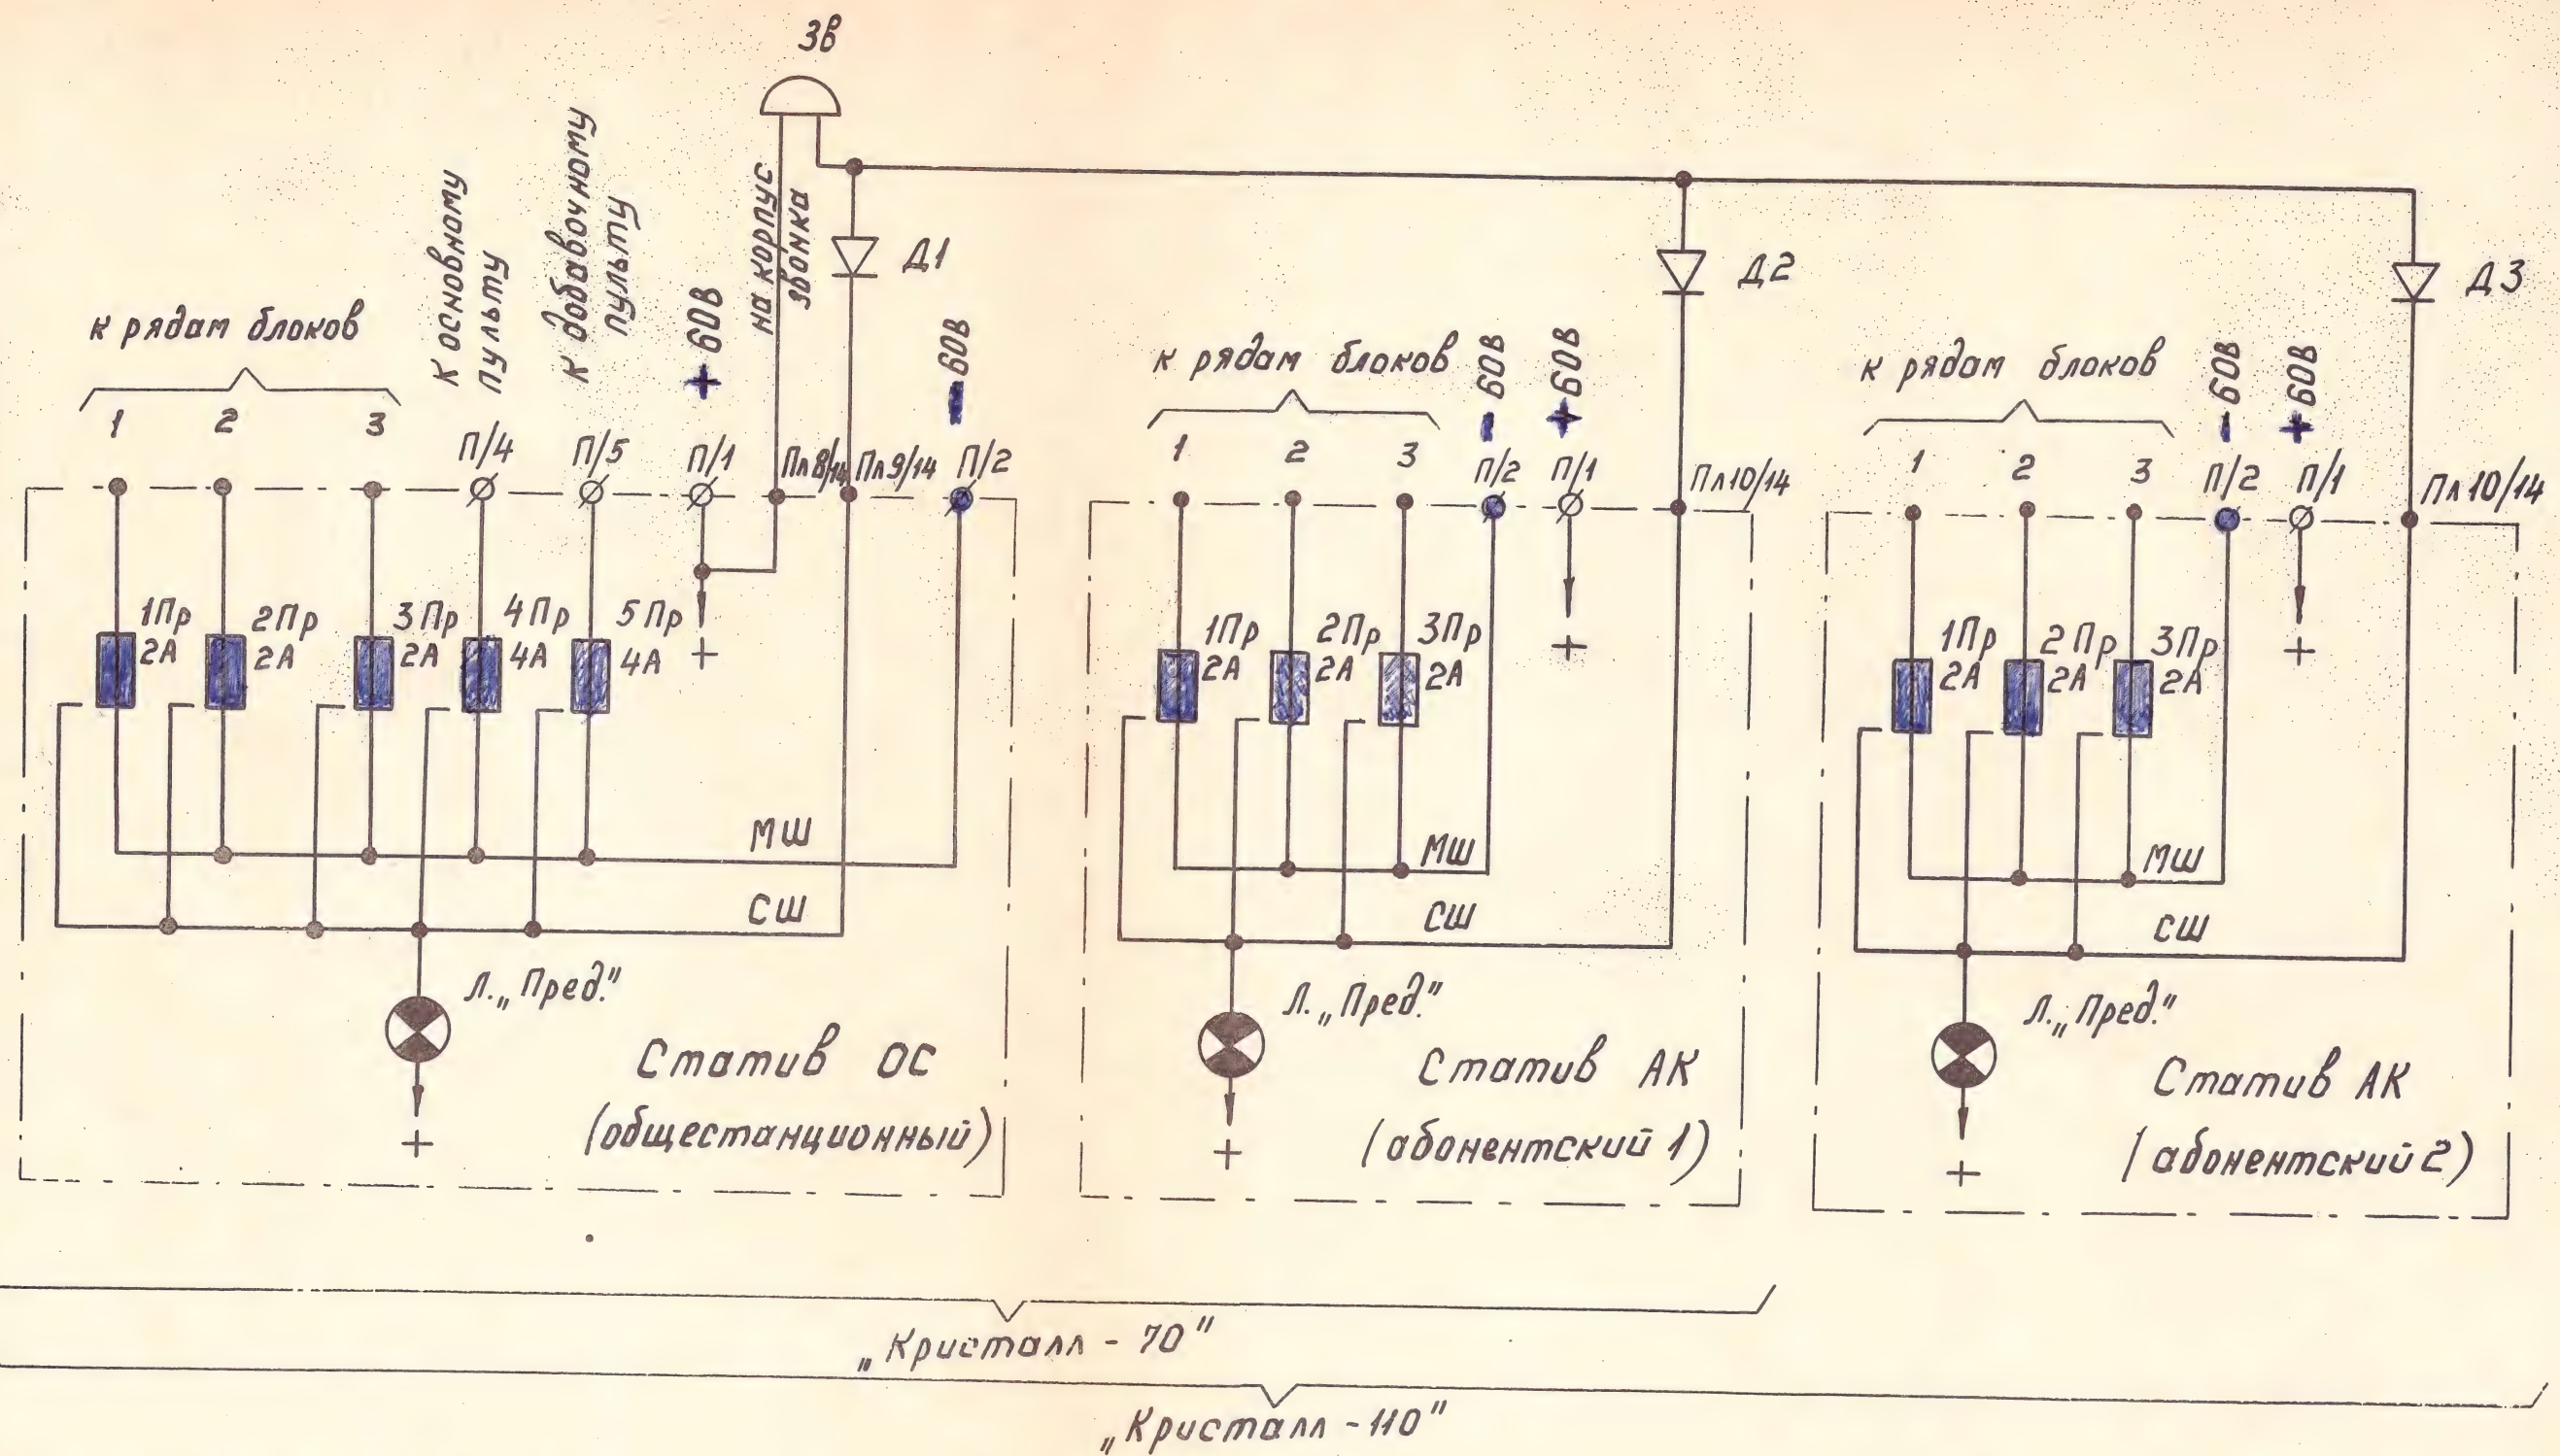 Зв
к рядам блоков
1 2 3
К основному
пульту
К добавочному
пульту
+ 60В
на корпус
звонка
Д1
- 60В
П/4
П/5
П/1
Пл8/14
Пл9/14
П/2
1Пр
2А
2Пр
2А
3Пр
2А
4Пр
4А
5Пр
4А
+
МШ
СШ
Л.„Пред."
+
Статив ОС
(общестанционный)
к рядам блоков
1 2 3
- 60В
+ 60В
Д2
П/2
П/1
Пл10/14
1Пр
2А
2Пр
2А
3Пр
2А
+
МШ
СШ
Л.„Пред."
+
Статив АК
(абонентский 1)
к рядам блоков
1 2 3
- 60В
+ 60В
Д3
П/2
П/1
Пл10/14
1Пр
2А
2Пр
2А
3Пр
2А
+
МШ
СШ
Л.„Пред."
+
Статив АК
(абонентский 2)
„Кристалл - 70"
„Кристалл - 110"